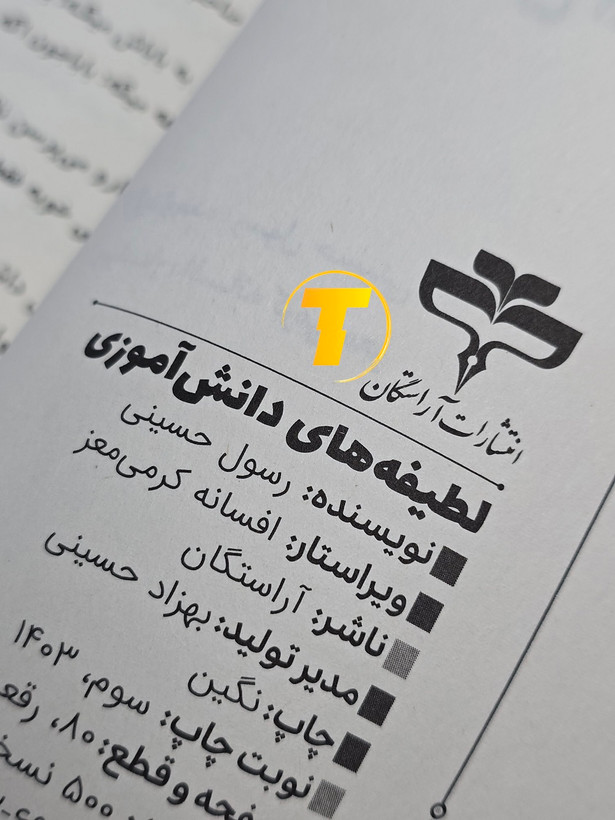 انتشارات آراستگان
T
لطیفه‌های دانش‌آموزی
نویسنده: رسول حسینی
ویراستار: افسانه کرمی‌معز
ناشر: آراستگان
مدیر تولید: بهزاد حسینی
چاپ: نگین
نوبت چاپ: سوم، ۱۴۰۳
قطع: ۸۰،
۵۰۰